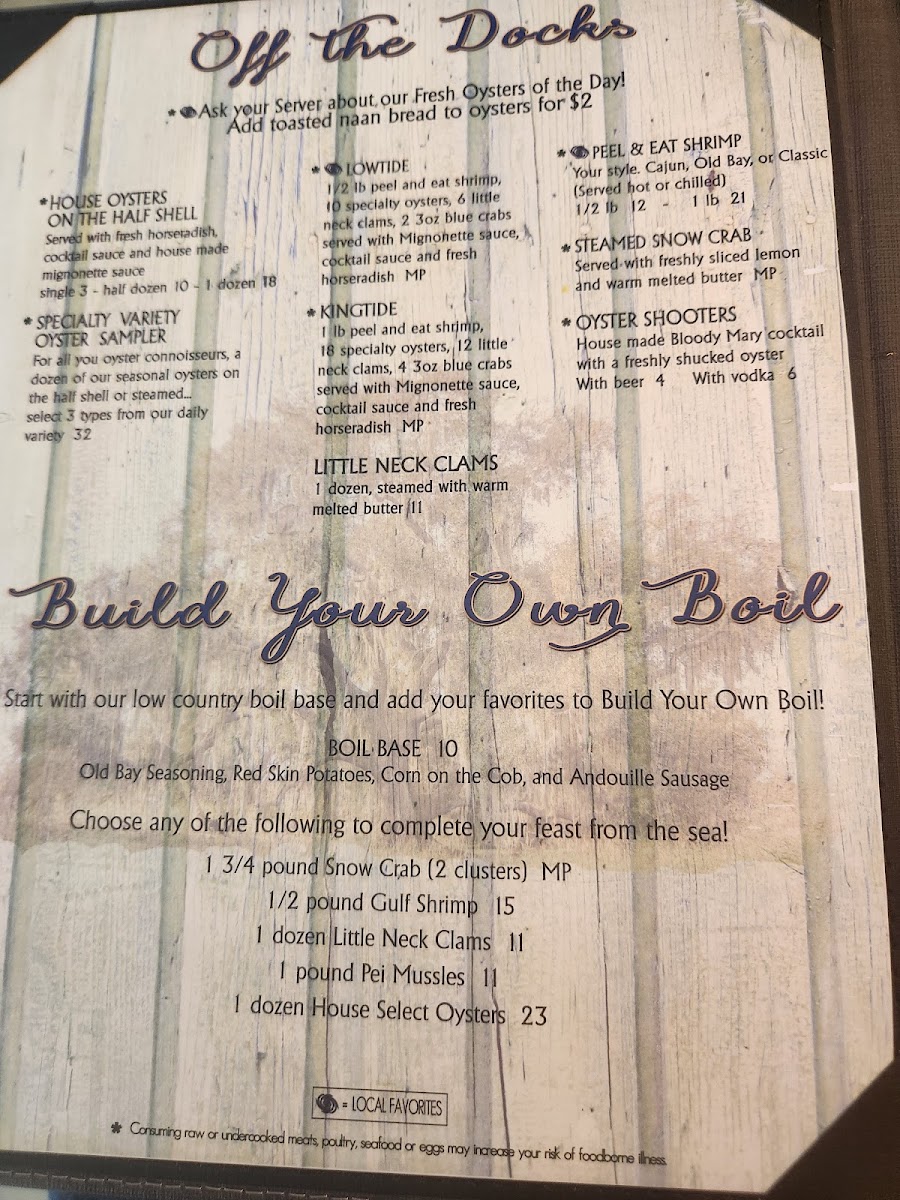 Off the Docks
* Ask your Server about our Fresh Oysters of the Day!
Add toasted naan bread to oysters for $2
* HOUSE OYSTERS
ON THE HALF SHELL
Served with fresh horseradish,
cocktail sauce and house made
mignonette sauce
single 3 - half dozen 10 - 1 dozen 18
* SPECIALTY VARIETY
OYSTER SAMPLER
For all you oyster connoisseurs, a
dozen of our seasonal oysters on
the half shell or steamed...
select 3 types from our daily
variety 32
* LOWTIDE
1/2 lb peel and eat shrimp,
10 specialty oysters, 6 little
neck clams, 2 3oz blue crabs
served with Mignonette sauce,
cocktail sauce and fresh
horseradish MP
* KINGTIDE
1 lb peel and eat shrimp,
18 specialty oysters, 12 little
neck clams, 4 3oz blue crabs
served with Mignonette sauce,
cocktail sauce and fresh
horseradish MP
LITTLE NECK CLAMS
1 dozen, steamed with warm
melted butter 11
* PEEL & EAT SHRIMP
Your style. Cajun, Old Bay, or Classic
(Served hot or chilled)
1/2 lb 12 - 1 lb 21
* STEAMED SNOW CRAB
Served with freshly sliced lemon
and warm melted butter MP
* OYSTER SHOOTERS
House made Bloody Mary cocktail
with a freshly shucked oyster
With beer 4 With vodka 6
Build Your Own Boil
Start with our low country boil base and add your favorites to Build Your Own Boil!
BOIL BASE 10
Old Bay Seasoning, Red Skin Potatoes, Corn on the Cob, and Andouille Sausage
Choose any of the following to complete your feast from the sea!
1 3/4 pound Snow Crab (2 clusters) MP
1/2 pound Gulf Shrimp 15
1 dozen Little Neck Clams 11
1 pound Pei Mussles 11
1 dozen House Select Oysters 23
= LOCAL FAVORITES
* Consuming raw or undercooked meats, poultry, seafood or eggs may increase your risk of foodborne illness.